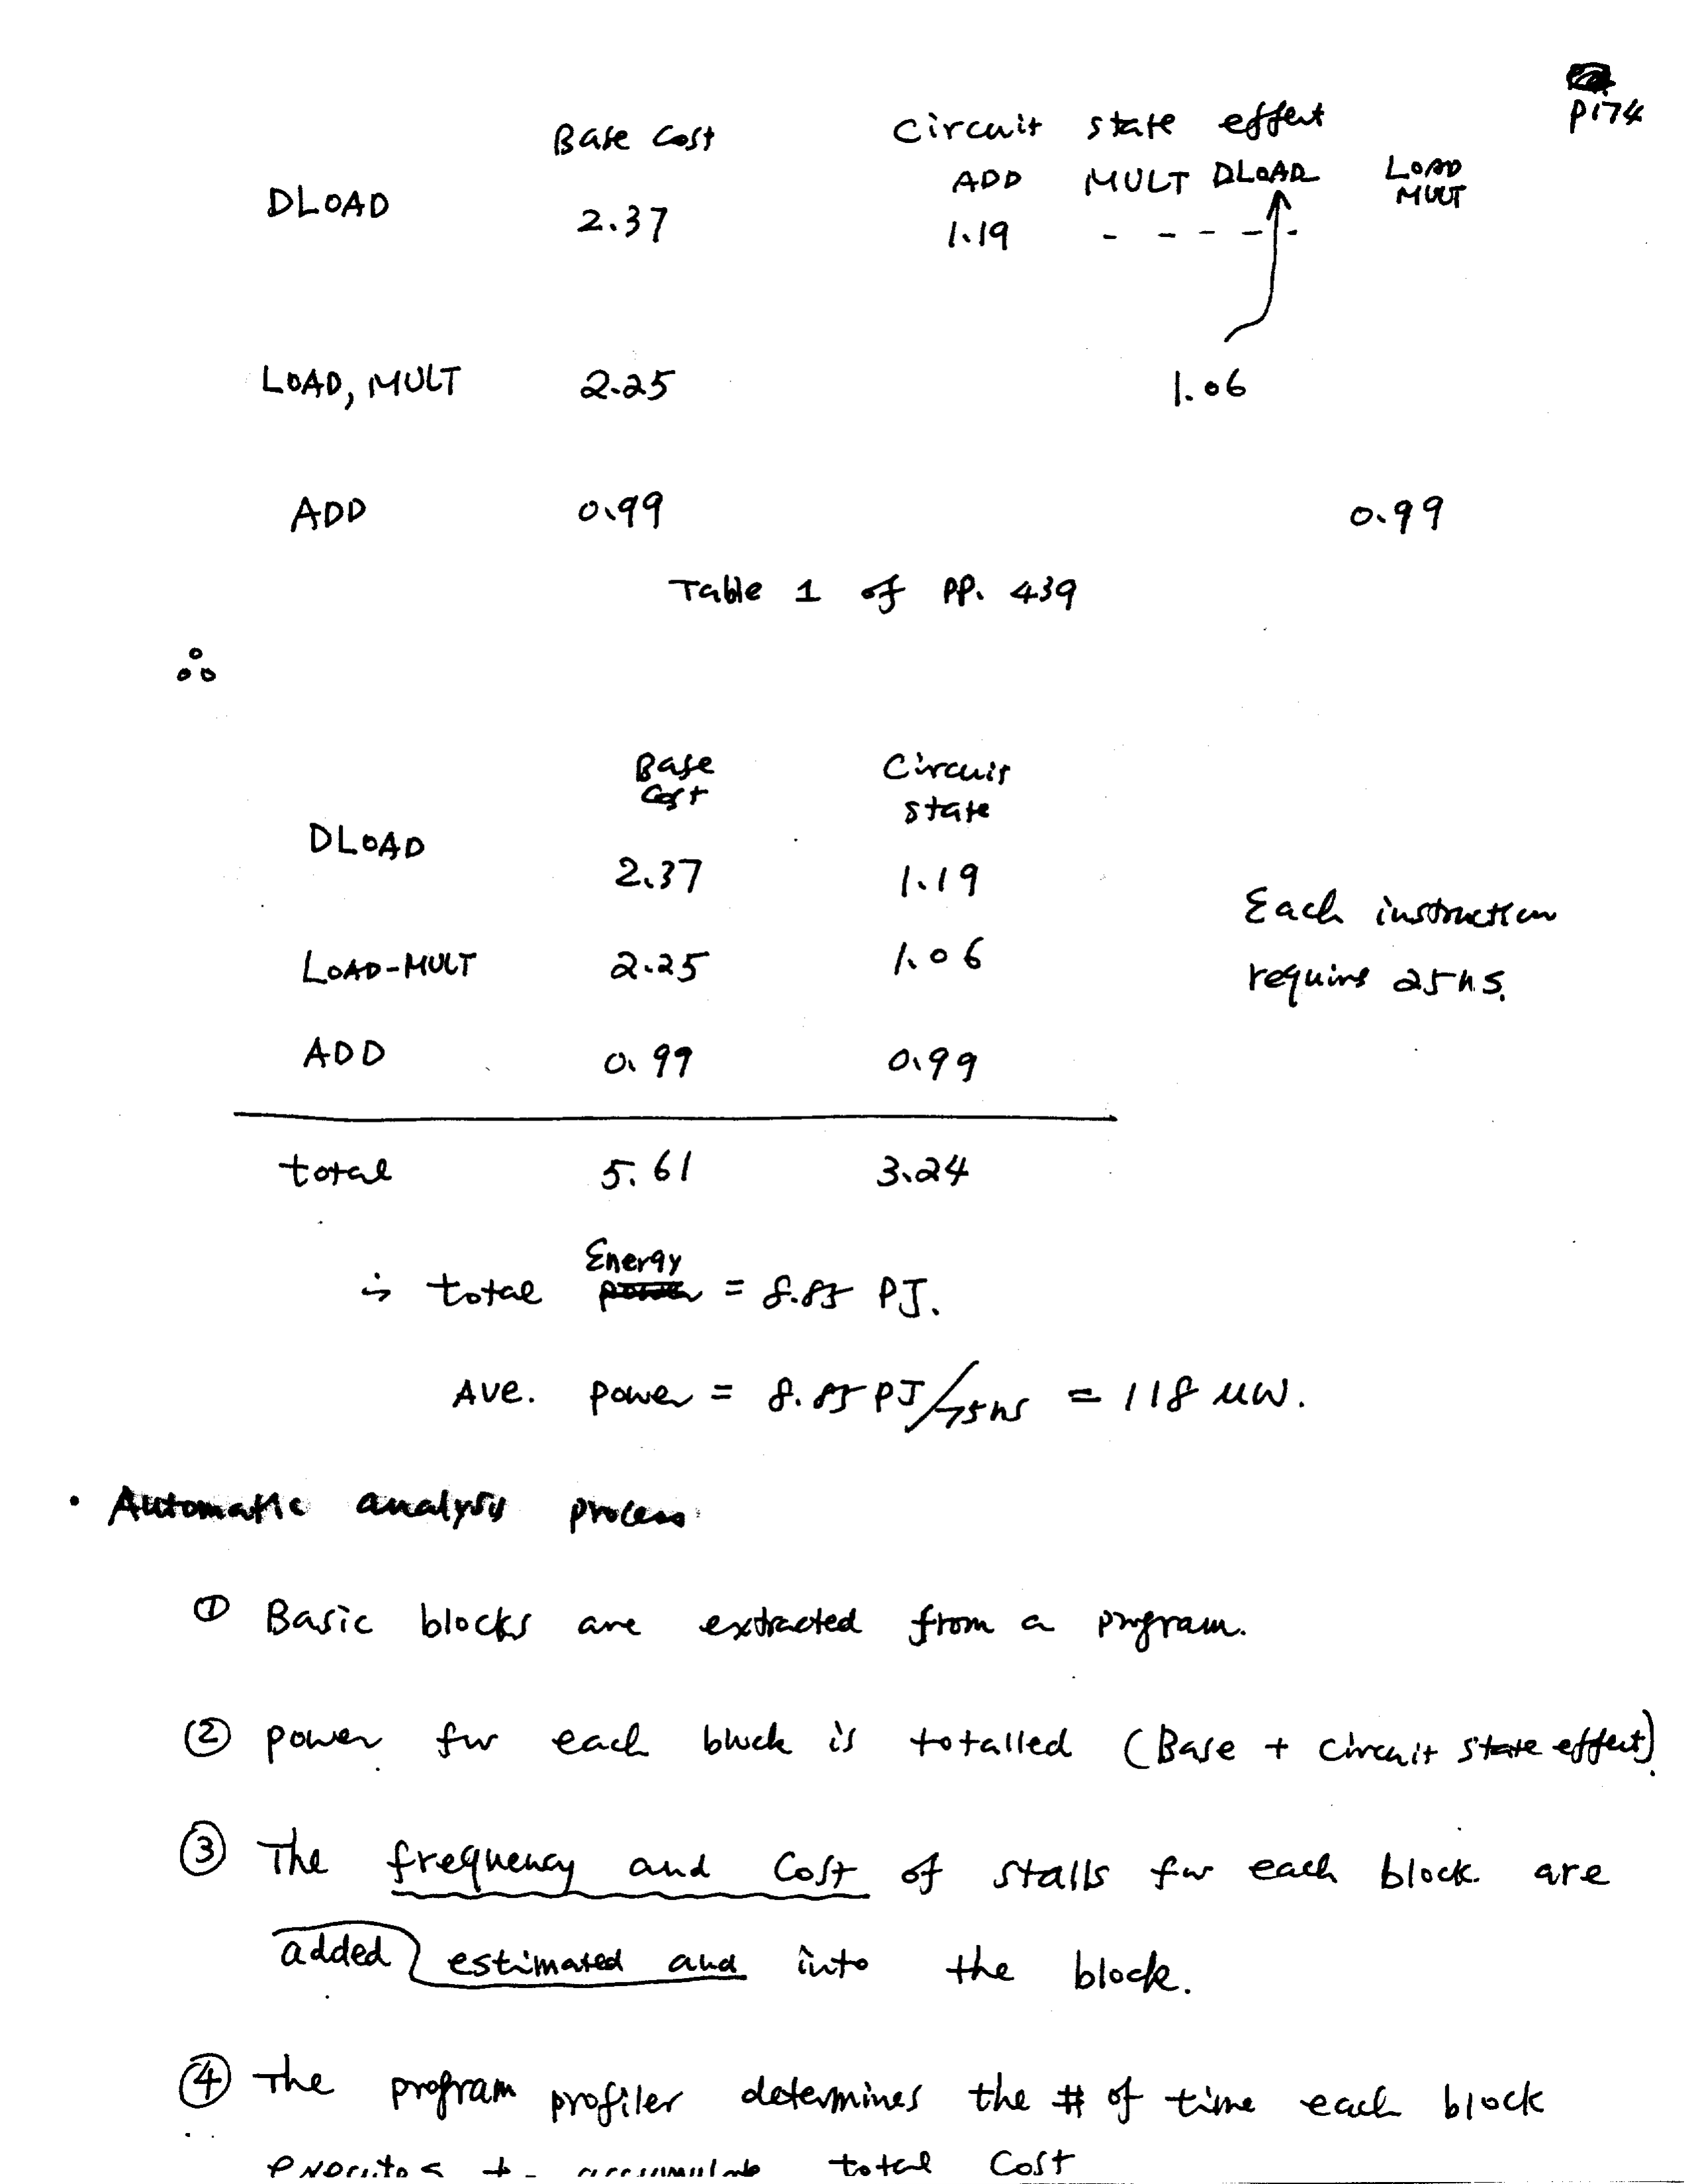 P174
Base Cost Circuit state effect
ADD MULT DLOAD LOAD MULT
DLOAD 2.37 1.19 - - - - -
LOAD, MULT 2.25 1.06
ADD 0.99 0.99
Table 1 of PP. 439
∴
Base Cost Circuit state
DLOAD
2.37 1.19
LOAD-MULT 2.25 1.06
ADD 0.99 0.99
Each instruction
require 25ns.
total 5.61 3.24
∴ total Energy = 8.85 PJ.
AVE. Power = 8.85 PJ/75ns = 118 uW.
• Automatic analysis process
① Basic blocks are extracted from a program.
② power for each block is totalled (Base + circuit state effect).
③ The frequency and cost of stalls for each block are
added estimated and into the block.
④ The program profiler determines the # of time each block
executes to accumulate total cost